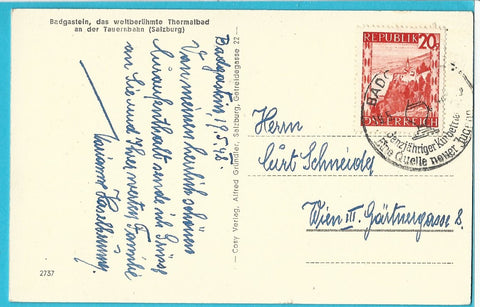 Badgastein, das weltberühmte Thermalbad
an der Tauernbahn (Salzburg)
Badgastein, 48.
Von meinem herrlich schönen
Kuraufenthalt sende ich Grüsse
an Sie und Ihre werte Familie
Marianne
2737
— Cosy Verlag, Alfred Gründler, Salzburg, Getreidegasse 22 —
REPUBLIK
20g
ÖSTERREICH
BADG
Ganzjähriger Kurbetrieb
Eine Quelle neuer Jugend
Herrn
Curt Schneider
Wien III. Gärtnergasse 8.